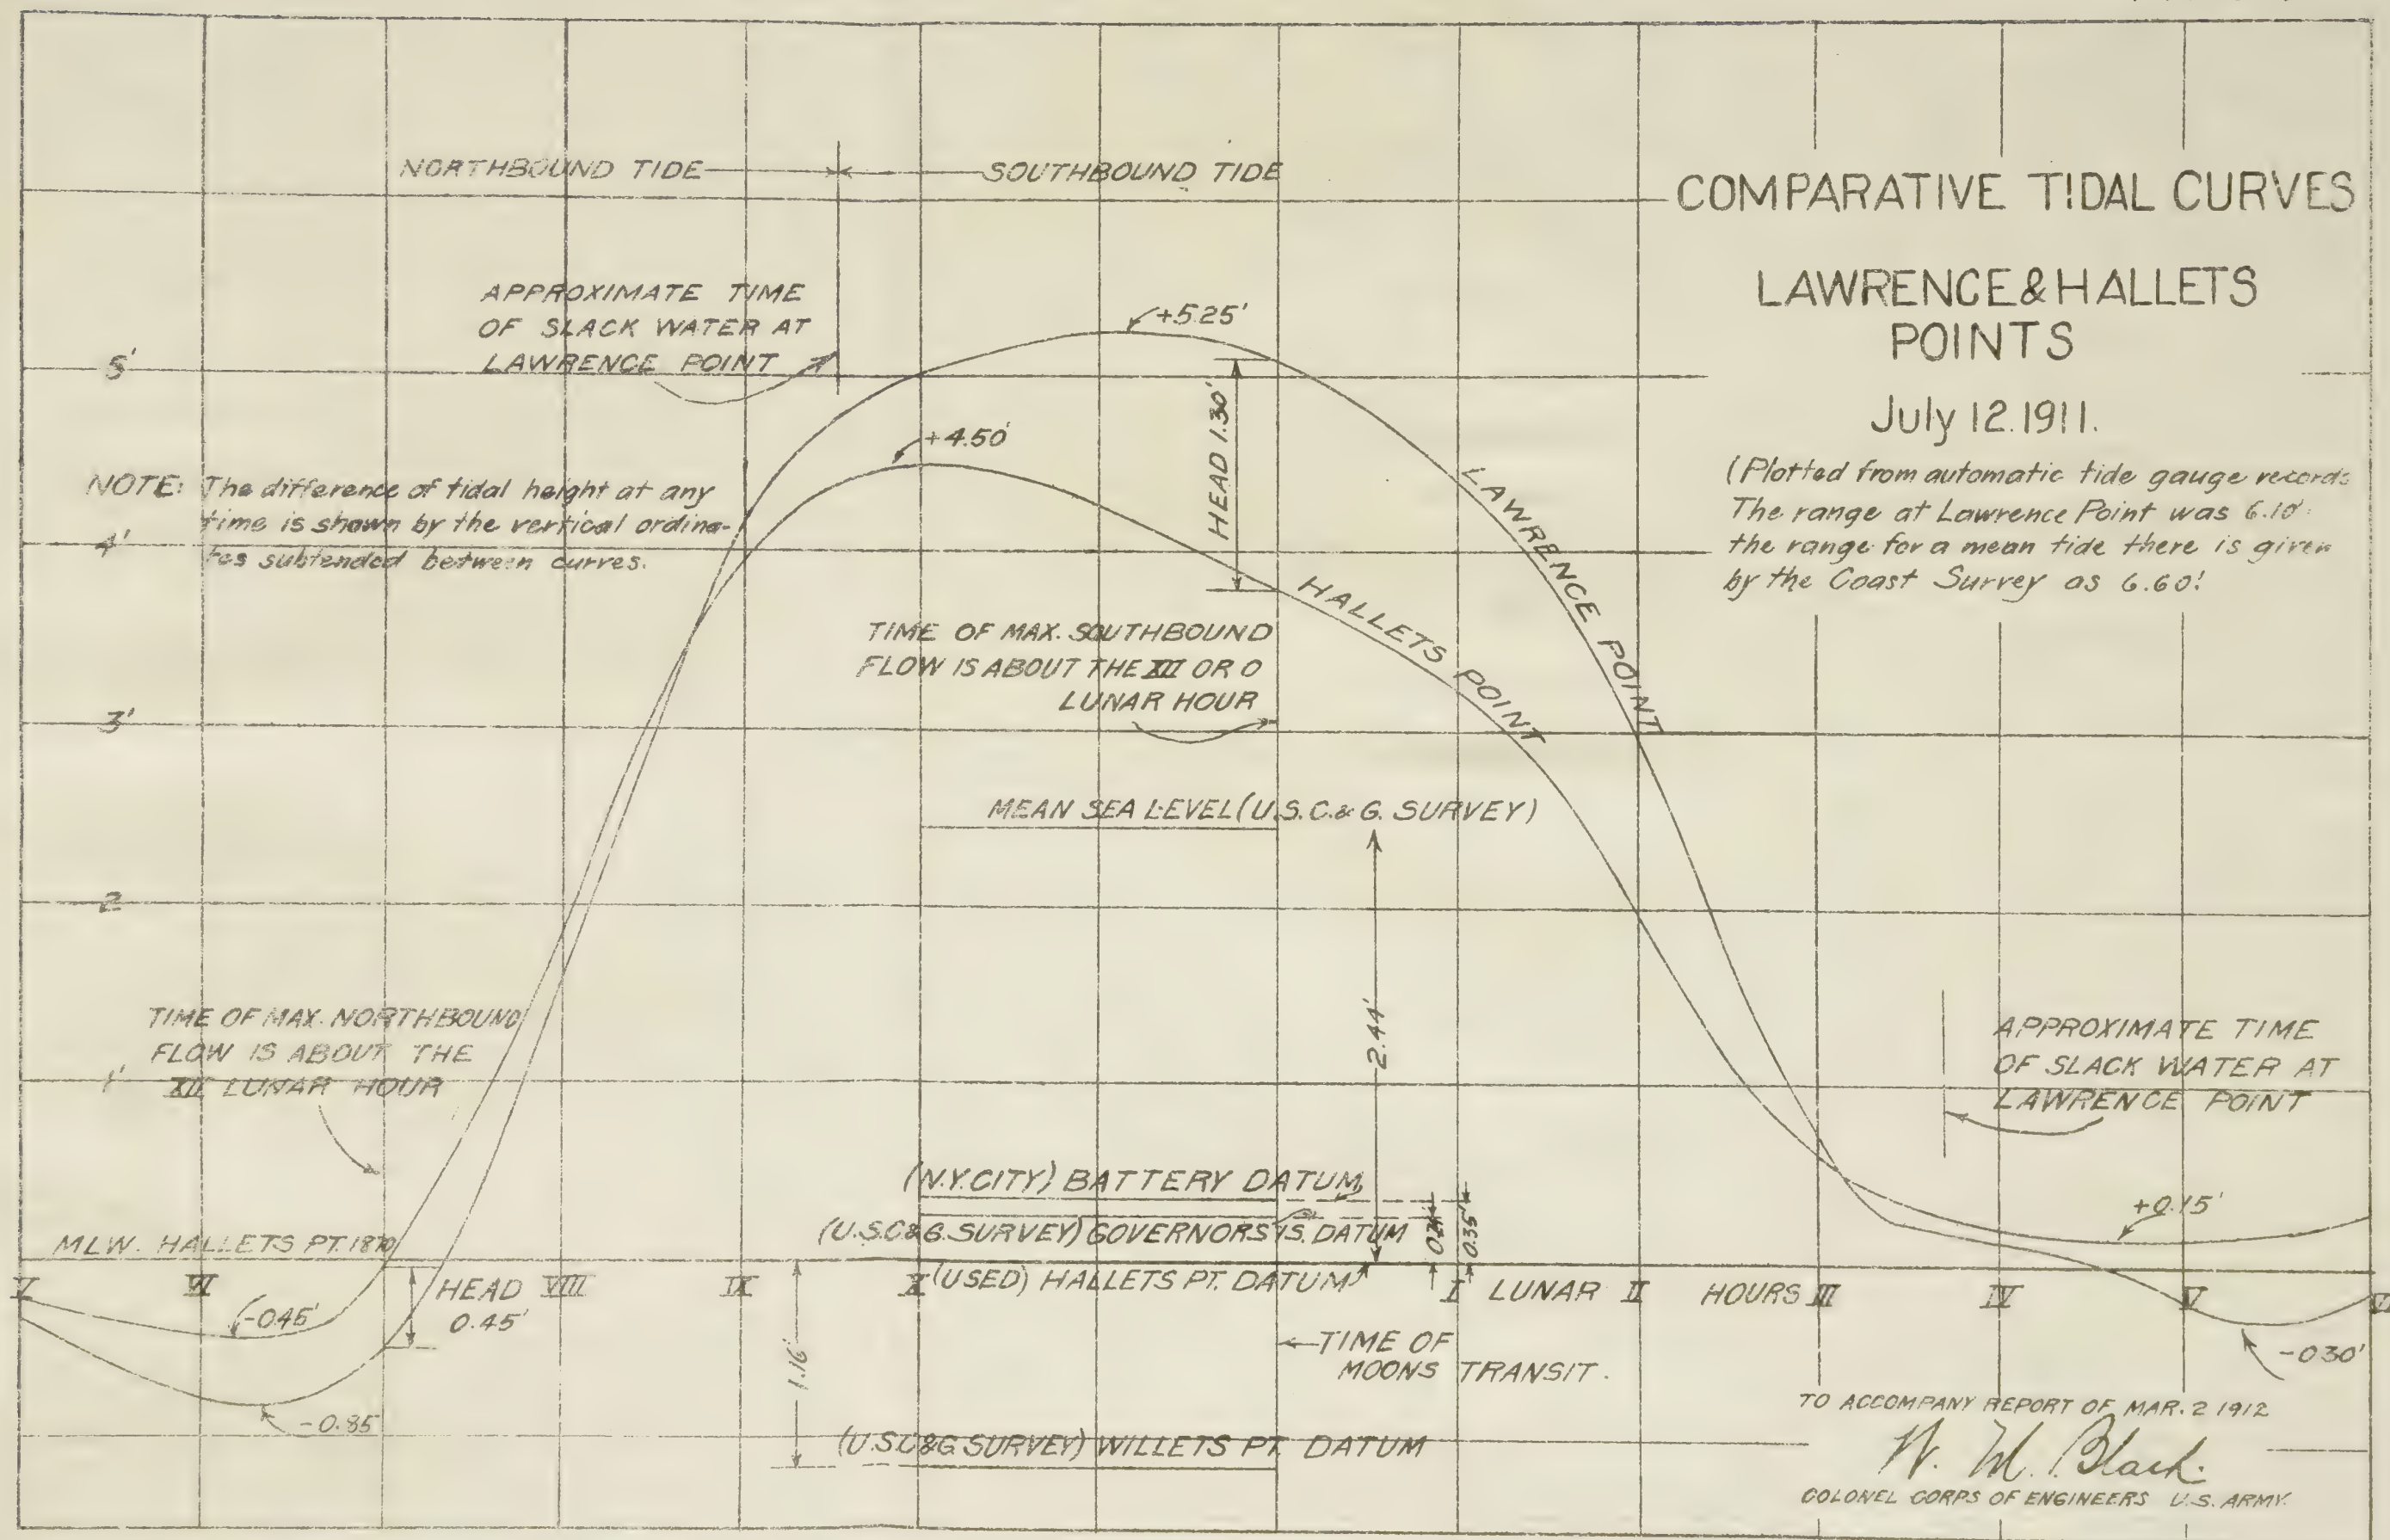 NORTHBOUND TIDE
SOUTHBOUND TIDE
COMPARATIVE TIDAL CURVES
LAWRENCE & HALLETS
POINTS
July 12. 1911.
(Plotted from automatic tide gauge records
The range at Lawrence Point was 6.10'
the range for a mean tide there is given
by the Coast Survey as 6.60!
APPROXIMATE TIME
OF SLACK WATER AT
LAWRENCE POINT
+5.25'
5'
+4.50'
HEAD 1.30'
NOTE: The difference of tidal height at any
time is shown by the vertical ordina-
tes subtended between curves.
4'
LAWRENCE POINT
HALLETS POINT
TIME OF MAX. SOUTHBOUND
FLOW IS ABOUT THE XII OR O
LUNAR HOUR
3'
MEAN SEA LEVEL (U.S.C.& G. SURVEY)
2
2.44'
TIME OF MAX. NORTHBOUND
FLOW IS ABOUT THE
XII LUNAR HOUR
1'
APPROXIMATE TIME
OF SLACK WATER AT
LAWRENCE POINT
(N.Y.CITY) BATTERY DATUM
(U.S.C&G. SURVEY) GOVERNORS IS. DATUM
0.35'
+0.15'
MLW. HALLETS PT. 1870
(USED) HALLETS PT. DATUM
V VI VIII IX X I LUNAR II HOURS III IV V VI
HEAD
0.45'
-0.45'
-0.85'
1.16'
TIME OF
MOONS TRANSIT.
-0.30'
(U.S.C&G SURVEY) WILLETS PT. DATUM
TO ACCOMPANY REPORT OF MAR. 2 1912
W. M. Black.
COLONEL CORPS OF ENGINEERS U.S. ARMY.